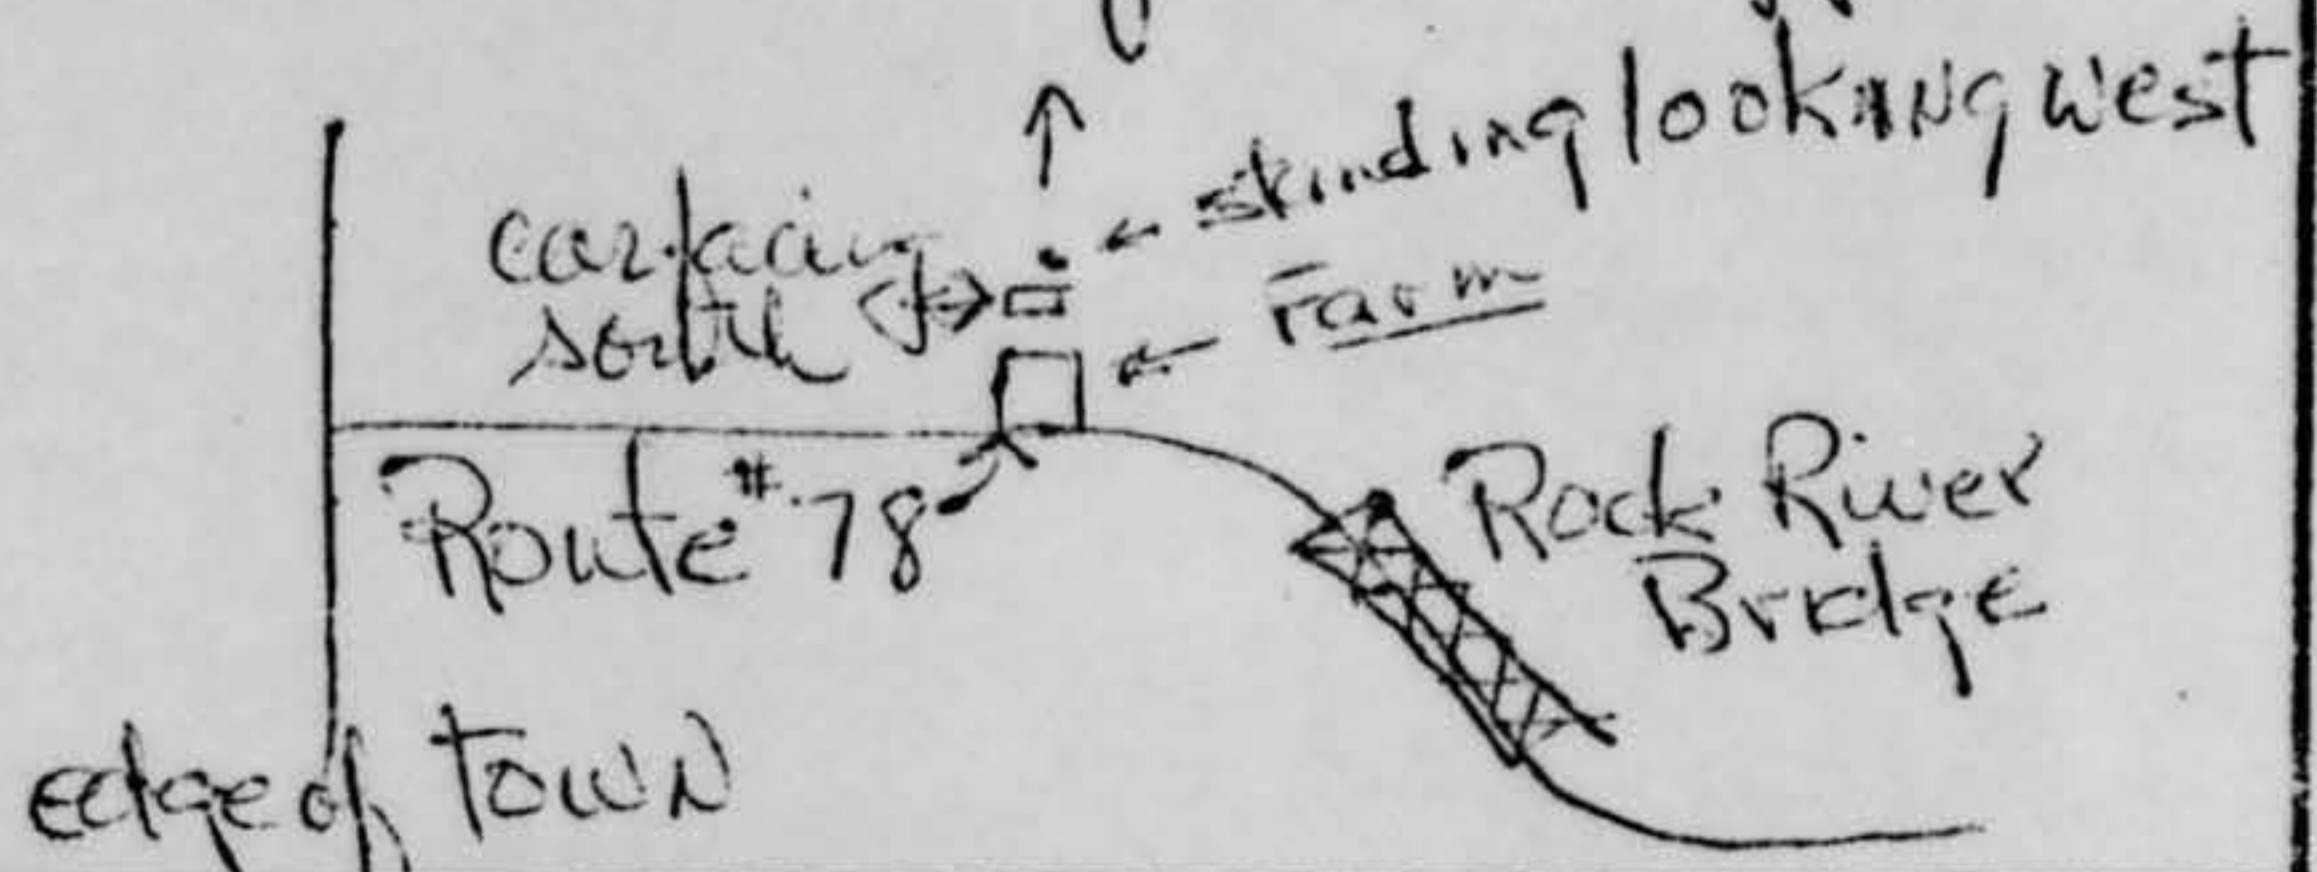 standing looking west
car facing
south
Farm
Route #78
Rock River
Bridge
edge of town